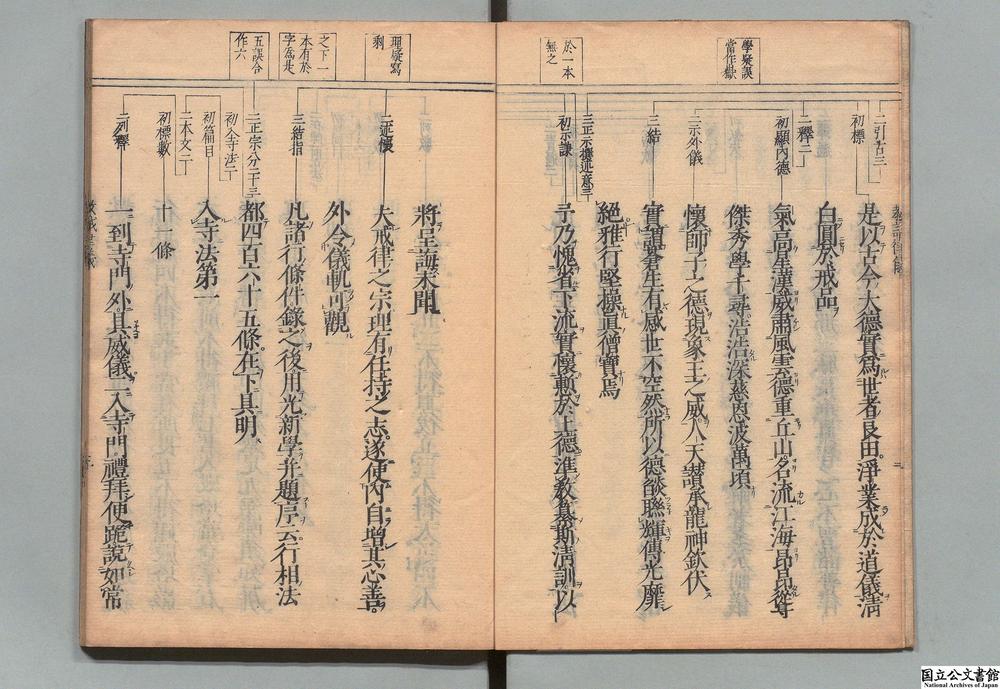 學疑誤
當作嶽
於一本
無之
二引古三
初標
二釋二
初顯內德
二示外儀
三結
三正示撰述意三
初示謙
是以古今大德實為世者良田淨業成於道儀清
白圓於戒品
氣高星漢威肅風雲德重丘山名流江海昂昂聳
傑秀學千尋浩浩深慈恩波萬頃
懷師子之德現象王之威人天讚承龍神欽伏
實謂蒼生有感世不空然所以德燄聯輝傳光靡
絕雅行堅操真僧寶焉
予乃愧省下流實懷慙於上德準教纂斯清訓以
理疑寫
剩
之下一
本有於
字為是
五誤合
作六
二述懷
三結指
三正宗分二十三
初入寺法二
初篇目
二本文二
初標數
二列釋
將呈誨未聞
夫戒律之宗理有任持之志遂使內自增其心善
外令儀軌可觀
凡諸行條件錄之後用光新學并題序云行相法
都四百六十五條在下具明
入寺法第一
十一條
一到寺門外具威儀二入寺門禮拜便跪說如常
国立公文書館
National Archives of Japan